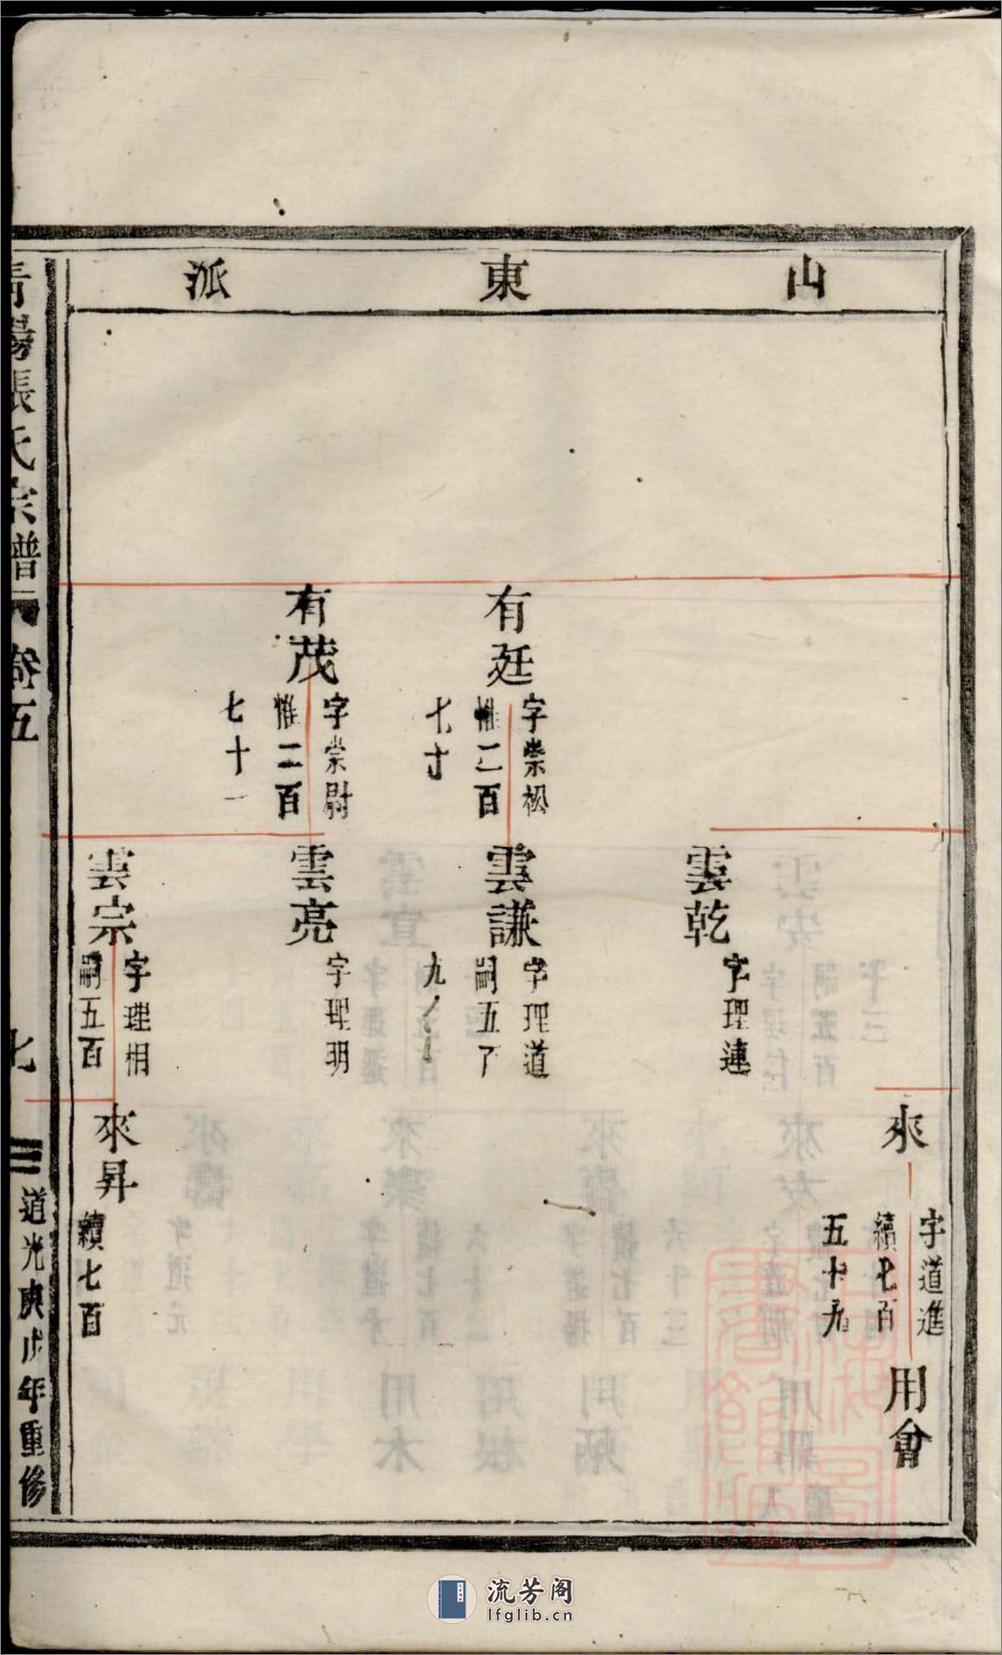 山東派
有廷
字崇松
惟二百
七十
有茂
字崇尉
惟二百
七十一
雲乾
字理連
雲謙
字理道
嗣五
九
雲亮
字理明
雲宗
字理相
嗣五百
來
字道進
續七百
五十九
來昇
續七百
用會
青陽張氏宗譜
卷五
七
道光庚戌年重修
流芳阁
lfglib.cn